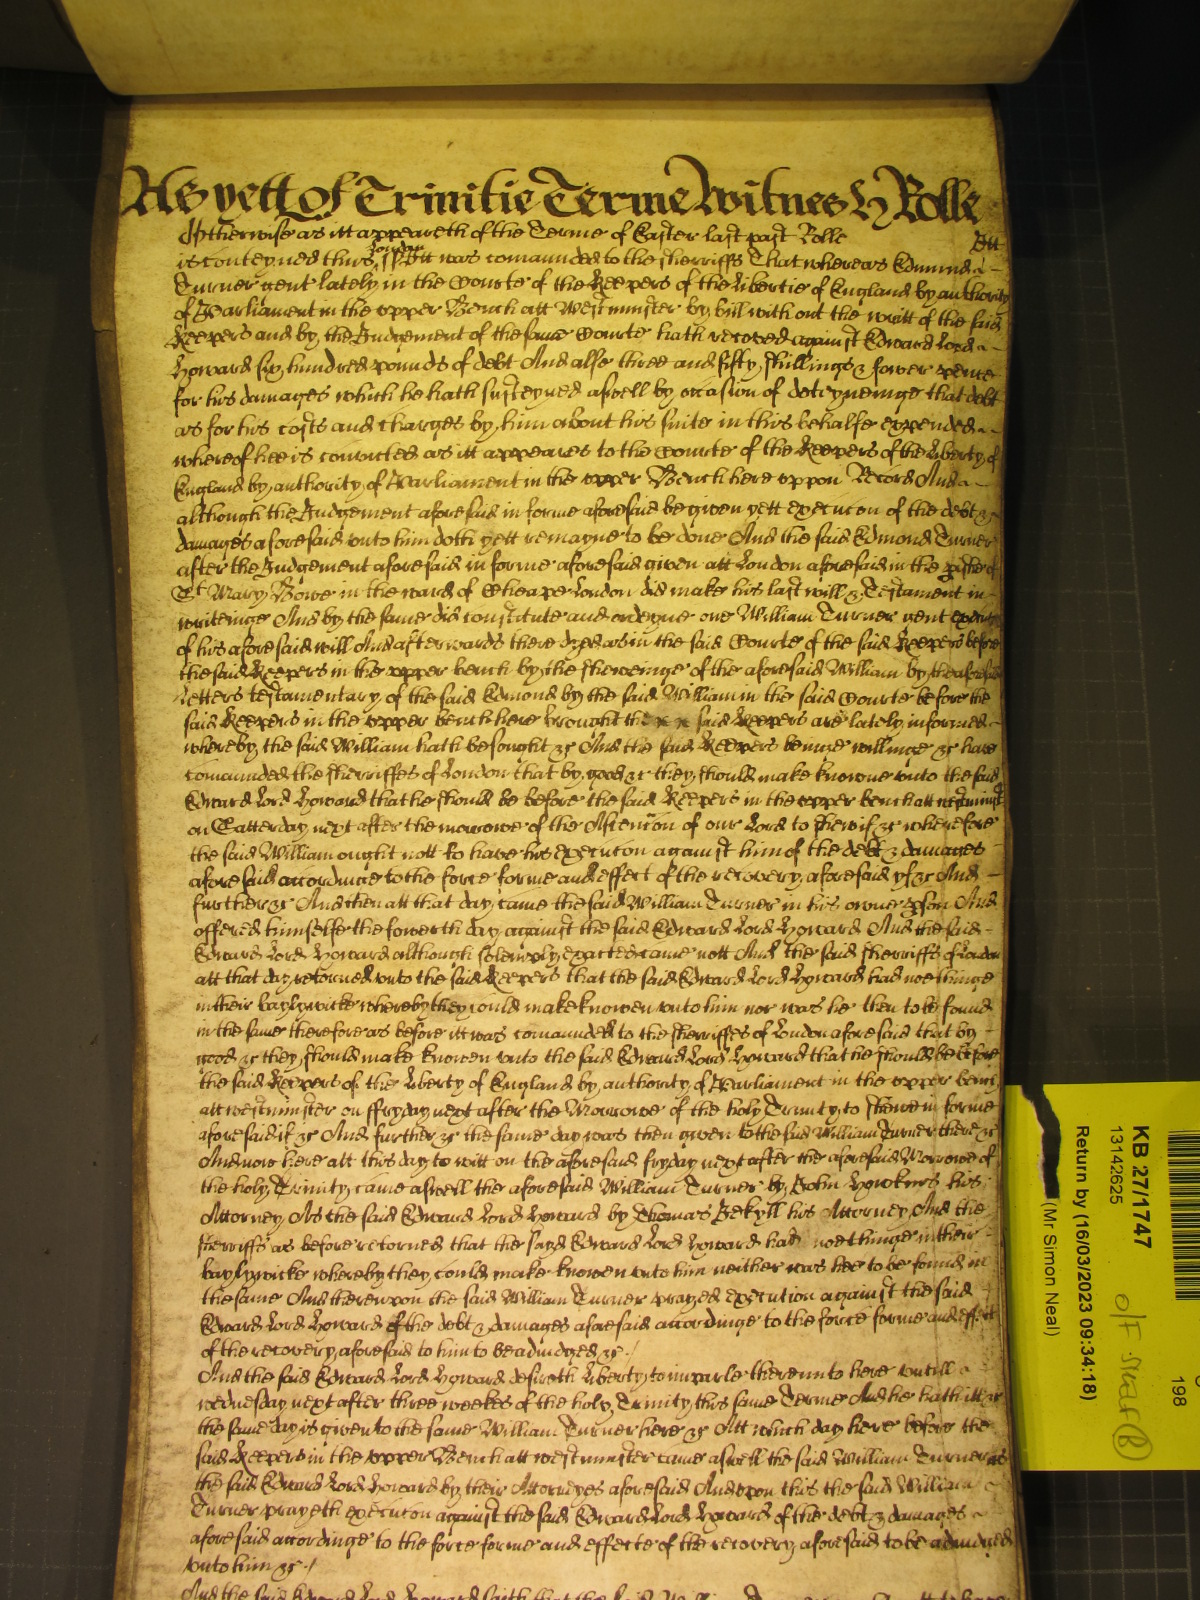 As yett Of Trinitie Terme Witnes H Rolle
Otherwise as itt appeareth of the Terme of Easter last past Rolle
is conteyned thus London ss Itt was comaunded to the sherriffs That whereas Edmund
Turner gent lately in the Courte of the Keepers of the Libertie of England by authority
of Parliament in the upper Bench att Westminster by bill without the writt of the said
Keepers and by the Judgement of the same Courte hath recoved against Edward Lord
Howard six hundred pounds of debt And alsoe three and fifty shillings & fower pence
for his damages which he hath susteyned aswell by occasion of deteyneinge that debt
as for his costs and charges by him about his suite in this behalfe expended
whereof hee is convicted as itt appeares to the Courte of the Keepers of the Liberty of
England by authority of Parliament in the upper Bench here uppon Record And
although the Judgement aforesaid in forme aforesaid be given yett execucon of the debt &
damages aforesaid unto him doth yett remayne to be done And the said Edmond Turner
after the Judgement aforesaid in forme aforesaid given att London aforesaid in the pishe of
St Mary Bowe in the ward of Cheape London did make his last will & Testament in
writeinge And by the same did constitute and ordeyne one William Turner gent
of his aforesaid will And afterwards there dyed as in the said Courte of the said Keepers before
the said Keepers in the upper bench by the sheweinge of the aforesaid William by the aforesaid
Letters testamentary of the said Edmond by the said William in the said Courte before the
said Keepers in the upper bench here brought the x x said Keepers are lately informed
whereby the said William hath besought &c And the said Keepers beinge willinge &c have
comaunded the sherriffes of London that by good &c they should make knowne unto the said
Edward Lord Howard that he should be before the said Keepers in the upper bench att westminster
on Satterday next after the morrowe of the Ascencon of our Lord to shew if &c wherefore
the said William ought nott to have his execucon against him of the debt & damages
aforesaid accordinge to the force forme and effect of the recovery aforesaid yf &c And
further &c And then att that day came the said William Turner in his owne pson And
offered himselfe the fowerth day against the said Edward Lord Howard And the said
Edward Lord Howard although solemnly exacted came nott And the said sherriffs of London
att that day retorned unto the said Keepers that the said Edward Lord Howard had noethinge
in their baylywicke whereby they could make knowen unto him nor was he then to be found
in the same therefore as before itt was comaunded to the sherriffes of London aforesaid that by
good &c they should make knowen unto the said Edward Lord Howard that he should be before
the said Keepers of the Liberty of England by authority of Parliament in the upper bench
att westminster on ffryday next after the Morrowe of the holy Trinity to shewe in forme
aforesaid if &c And further &c the same day was then given to the said William Turner there &c
And now here att this day to witt on the aforesaid fryday next after the aforesaid Morrowe of
the holy Trinity came aswell the aforesaid William Turner by John Howkins his
Attorney As the said Edward Lord Howard by Thomas Jekyll his Attorney And the
sherriffs as before retorned that the sayd Edward Lord Howard had noethinge in their
baylywicke whereby they could make knowen unto him neither was hee to be found in
the same And thereupon the said William Turner prayed execution against the said
Edward Lord Howard of the debt & damages aforesaid accordinge to the force forme and effect
of the recovery aforesaid to him to be adiudged &c
And the said Edward Lord Howard desireth Liberty to imparle thereunto here untill
wednesday next after three weekes of the holy Trinity this same Terme And he hath itt &c
the same day is given to the same William Turner here &c Att which day here before the
said Keepers in the upper Bench att westminster came aswell the said William Turner as
the said Edward Lord Howard by their Attornyes aforesaid And upon this the said William
Turner prayeth execucon against the said Edward Lord Howard of the debt & damages
aforesaid accordinge to the force forme and effecte of the recovery aforesaid to be adiudged
unto him &c
And the said Edward Lord Howard saith that the said William Turner
KB 27/1747
13142625
Return by (16/03/2023 09:34:18)
(Mr Simon Neal)
198